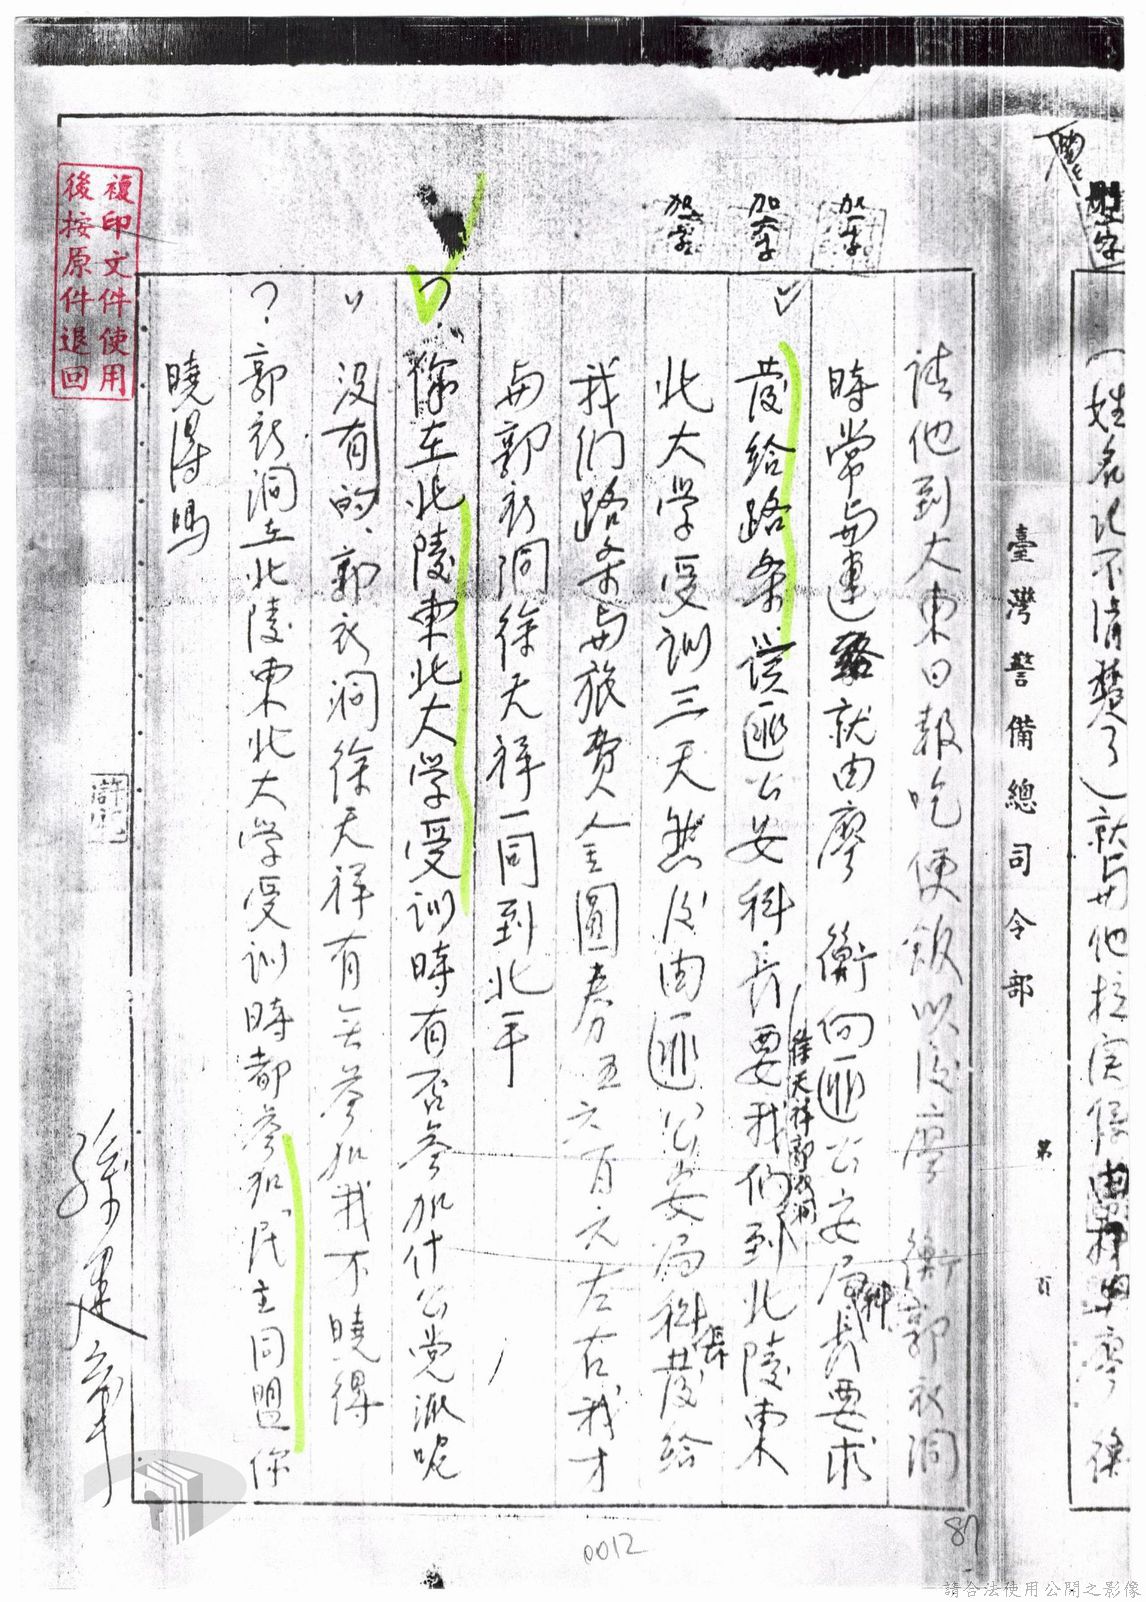 (姓名记不清楚了)就与他拉関係 廖 
臺灣警備總司令部
第 頁
请他到大東日報吃便飯以後廖 衡郭衣洞
時常与連絡就由廖 衡向匪公安局科長要求
發給路条 匪公安科長要徐天祥郭衣洞我们到北陵東
北大学受训三天然後由匪公安局科長發給
我们路条与旅費金圓券五六百元左右我才
与郭衣洞徐天祥一同到北平
?.徐在北陵東北大学受训時有否參加什么党派呢
没有的.郭衣洞徐天祥有无參加我不曉得
?.郭衣洞在北陵東北大学受训時都參加「民主同盟你
曉得嗎
孫建章
加一字
加六字
複印文件使用
後按原件退回
0012
87
請合法使用公開之影像